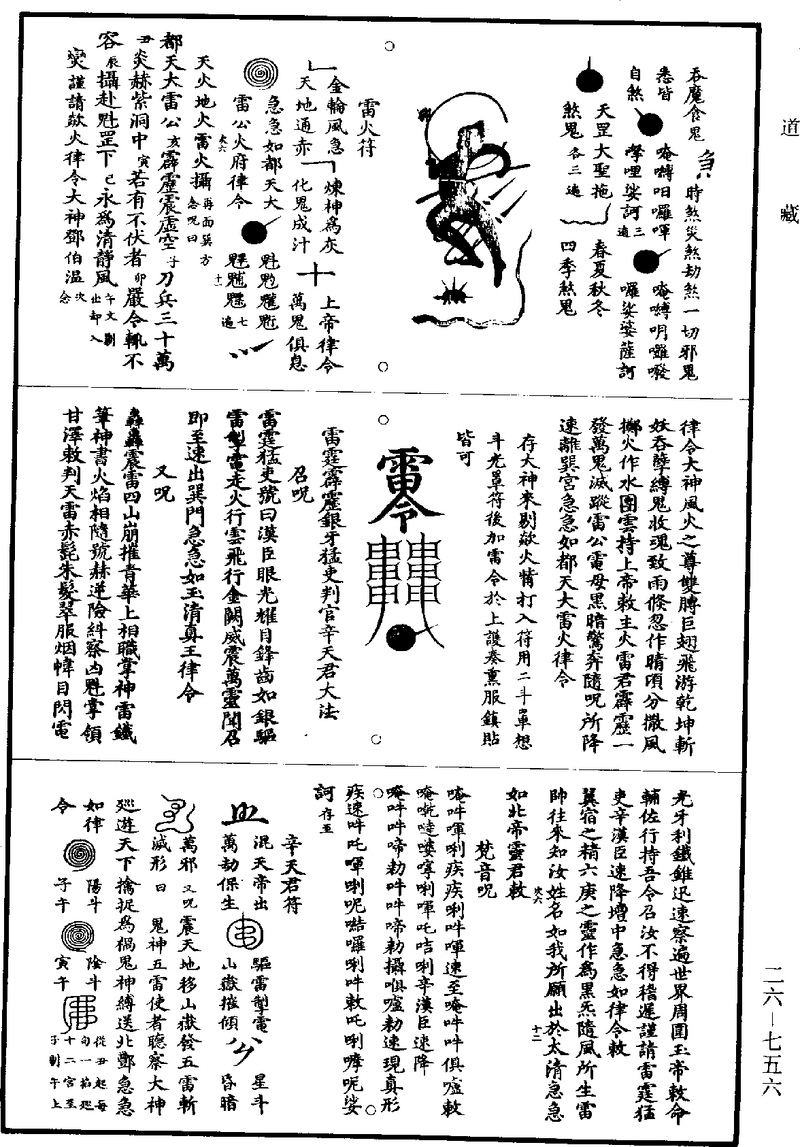 道藏
吞魔食鬼 時煞災煞劫煞一切邪鬼
悉皆 唵嚩呬囉㗸 唵嚩明囉㗶
自煞 㗶哩娑訶三遍 囉娑婆薩訶
天罡大聖拖 春夏秋冬
煞鬼各三遍 四季煞鬼
雷火符
金輪風急 煉神為灰 上帝律令
天地通赤 化鬼成汁 萬鬼俱息
急急如都天大
雷公火府律令
天火地火雷火攝再面巽方念呪曰
都天大雷公亥霹靂震虛空子刀兵三十萬
丑炎赫紫洞中寅若有不伏者卯嚴令輒不
容辰攝赴魁罡下巳永為清靜風午
災謹請歘火律令大神鄧伯溫次念
律令大神風火之尊雙膊巨翅飛游乾坤斬
妖吞孽縛鬼收魂致雨倏忽作晴頃分撒風
擲火作水團雲持上帝敕主火雷君霹靂一
發萬鬼滅蹤雷公電母黑暗驚奔隨呪所降
速離巽宮急急如都天大雷火律令
存大神來剔歘火精打入符用二斗單想
斗光罩符後加雷令於上護奏熏服鎮貼
皆可
雷令
雷霆霹靂銀牙猛吏判官辛天君大法
召呪
雷霆猛吏號曰漢臣眼光耀目鋒齒如銀驅
雷掣電走火行雲飛行金闕威震萬靈聞召
即至速出巽門急急如玉清真王律令
又呪
轟轟震雷四山崩摧青華上相職掌神雷鐵
筆神書火焰相隨號赫逆險糾察凶魁掌領
甘澤敕判天雷赤髭朱髮翠服烟幃目閃電
光牙利鐵錐迅速察遍世界周圍玉帝敕命
輔佐行持吾令召汝不得稽遲謹請雷霆猛
吏辛漢臣速降壇中急急如律令敕
翼宿之精六庚之靈作為黑炁隨風所生雷
帥往來知汝姓名如我所願出於太清急急
如北帝靈君敕
梵音呪
唵吽㗸唎疾疾唎吽㗸速至唵吽吽俱嚧敕
辛漢臣速降
唵吽吽啼勑吽吽啼勑攝㗸嚧勑速現真形
訶存至
辛天君符
混天帝出 驅雷掣電 星斗
萬劫保生 山嶽摧傾 昏暗
萬邪又呪震天地移山嶽發五雷斬
滅形曰 鬼神五雷使者聽察大神
廵遊天下擒捉為禍鬼神縛送北酆急急
如律 陽斗 陰斗 從丑起每
令 子午 寅午 十二宮至子剔午上
二六—七五六